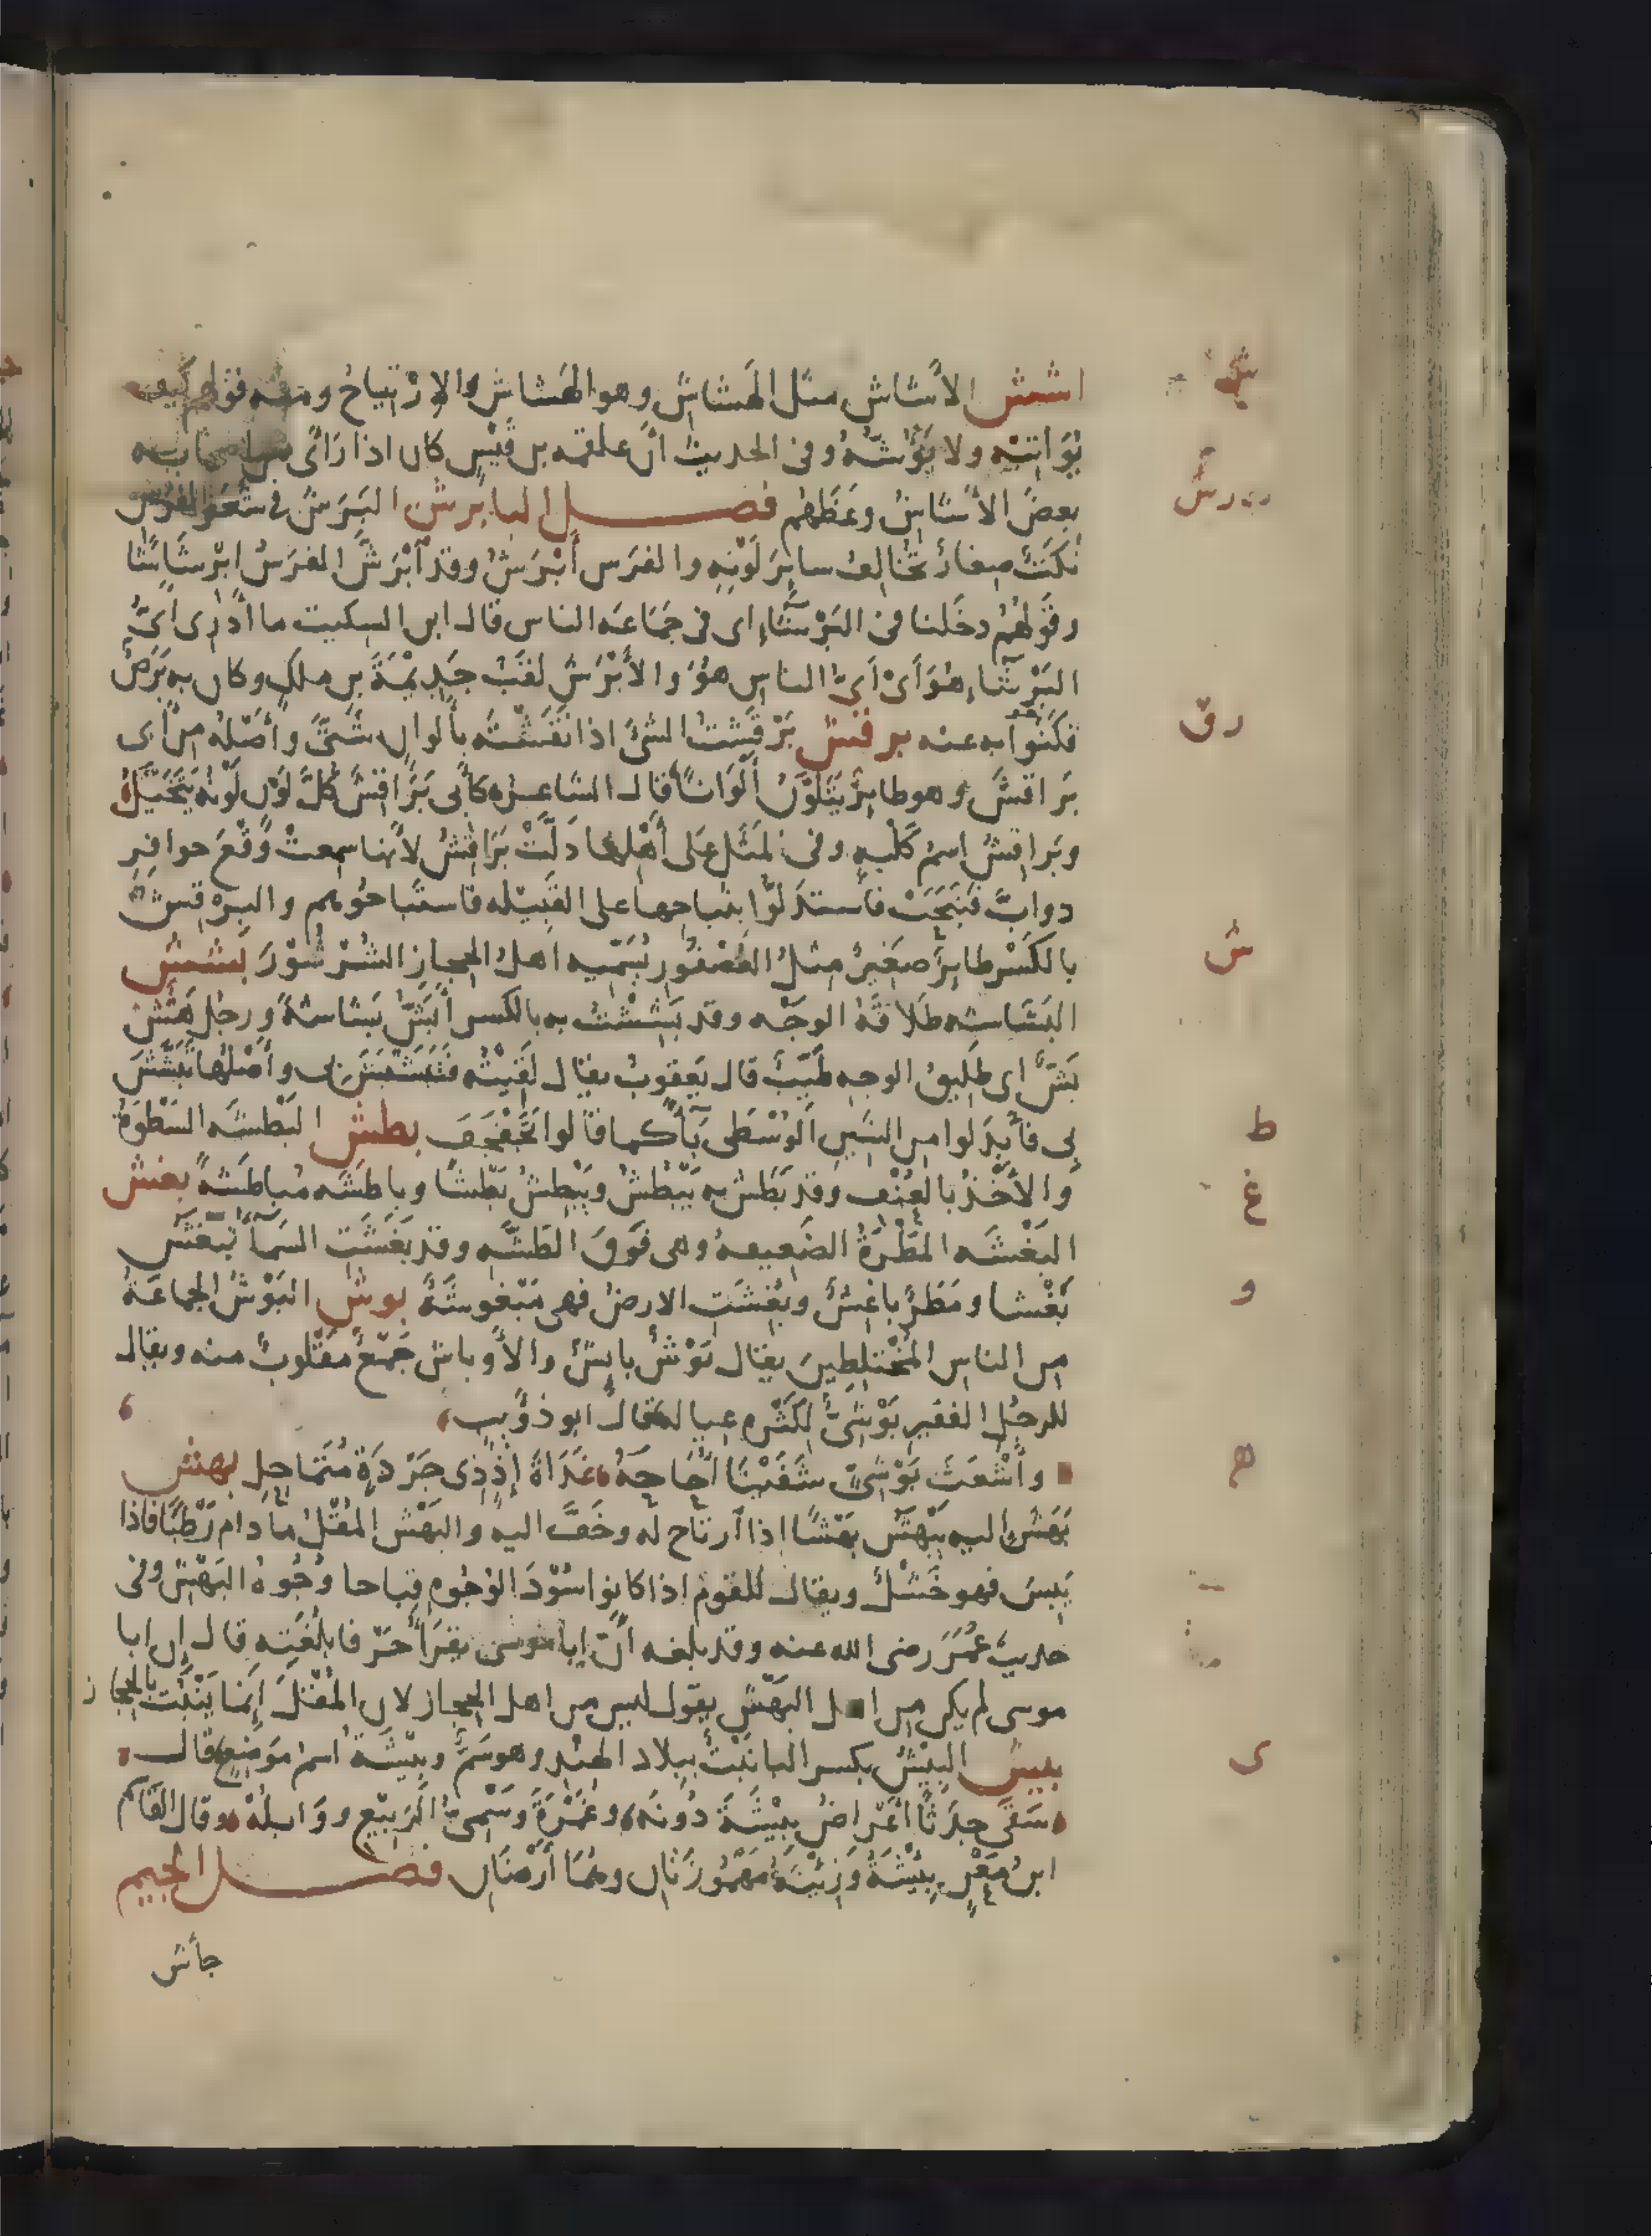 اشش الأشاش مثل الهشاش وهو الهشاش والارْتِياحُ ومنه قولهم كيف
يُوَاتِيْهِ ولا يَؤُشُّهُ وفى الحديث انَّ علقمه بن قَيْسٍ كان اذا رَاَى من اصحابه
بعضَ الأشَاشِ وعَظَهُم فصل البا برش البَرَشُ فى شَعَر الفَرَس
نُكَتٌ صِغارٌ تُخَالِفُ سايِرَ لَوْنِهِ والفَرَس أَبْرَشُ وقد آبْرَشَّ الفَرَسُ ابْرِشَاشًا
وقَوْلُهُمْ دخَلنا فى البَرْشَآءِ اى فى جَمَاعَه الناس قال ابن السكيت ما أَدْرِى أَىُّ
البَرْشَآءِ هُوَ أَىْ أَىُّ الناسِ هُوَ والأَبْرَشُ لَقَبُ جَذِيْمَةَ بن مَلِكٍ وكان به بَرَصٌ
فكَنَوْا به عنه برقش بَرْقَشْتُ الشئَ اذا نَقَشْتَه بألوان شَتَّى وأَصْلُه من أبى
بَرَاقشَ وهو طايِرٌ يَتَلَوَّنُ أَلْوَانًا قال الشاعر كأبى بَرَاقِشَ كُلَّ لَوْنٍ لَوْنُهُ يَتَخَيَّلُ
وبَراقِشُ اسمُ كَلْبهٍ وفى لمَثَل عَلى أَهْلِهَا دَلَّتْ بَرَاقِشُ لأنها سمِعتْ وَقْعَ حوافِرِ
دوابَّ فَنَبَحَتْ فاستدَلوّا بنُباحِها على القَبِيْله فاستَباحُوهم والبِرْقِش
بالكَسْر طايِرٌ صَغِيْرٌ مثلُ العُصْفُورِ يُسَمّيه اهلُ الحِجاز الشُرْشُوْرَ بشش
البَشَاشه طَلَاقَةُ الوَجْه وقد بَشِشْتُ به بالكسر أَبَشُّ بَشَاشةً ورجُل هَشّ
بَشّ اى طَلِيقُ الوجِه طَيّبٌ قال يَعقوبُ يقال لَقِيْتُه فَتَبَشْبَشَ بى وأَصْلُها تَبَشَّشَ
بى فأبدَلوا من الشينِ الوُسْطى بَآءً كما قالوا تَجَفْجَفَ بطش البَطْشَه السَطْوَةُ
والأَخْذُ بالعُنْفِ وقد بَطَشَ به يَبْطُشُ ويَبْطِشُ بَطْشًا وباطَشَه مُباطَشةً بغش
البَغْشَه المَطْرَةُ الضَعِيفهُ وهى فَوْقَ الطَشَّه وقد بَغَشَتِ السَمآءُ تَبْغَشُ
بَغْشا ومَطَرٌ باغِشٌ وبُغِشَتِ الارضُ فهى مَبْغوشةٌ بوش البَوْشُ الجماعَةُ
مِن الناسِ المُخْتلِطِينَ يقال بَوْشٌ بايِشٌ والأَوباش جَمْعٌ مَقْلوبٌ منه ويقال
للرجُل الفقير بَوْشِىٌّ لكَثْرهِ عيالهِ قال أبو ذُؤَيبٍ
وأَشْعَثَ بَوْشِىٍّ شَفَيْنَا أُحَاحَهُ غَدَاةَ إِذٍ ذِى جَرْدَةٍ مُتَمَاحِلِ بهش
بَهَشَ اليه يَبْهَشُ بَهْشًا اذا آرتاح له وخَفَّ اليه والبَهْشُ المُقْلُ ما دام رَطْبًا فاذا
يَبِسَ فهو خَشْلٌ ويقال للقوم اذا كانوا سُوْدَ الوُجُوهِ قباحا وُجُوهُ البَهْشِ وفى
حديث عُمَرَ رضى الله عنه وقد بلغه أَنَّ ابا موسى يقرَأُ حَرْفا بلُغَتِه قال إِن ابا
موسى لم يكن مِن اهل البَهْشِ يقول ليس من اهل الحِجاز لان المُقْلَ إِنما يَنْبُت بالحجاز
بيش البِيْشُ بكسر البا نَبْتٌ ببلاد الهِنْدِ وهو سَمٌّ وبِيْشَةُ اسمُ مَوضِعٍ قال
سَقَى جدَثًا أَعْراضُ بِيْشَةَ دُونَه وغَمْرَةَ وَسْمِىُّ الرَبِيْعِ ووَابلُهْ وقال القاسم
ابنُ مَعْنٍ بِئْشَةُ وزِئْنَةُ مَهْمُوزَتانِ وهُمَا أَرْضَانِ فصل الجيم
جأش
شـ
رش
رق
ش
ط
غ
و
ه
ى